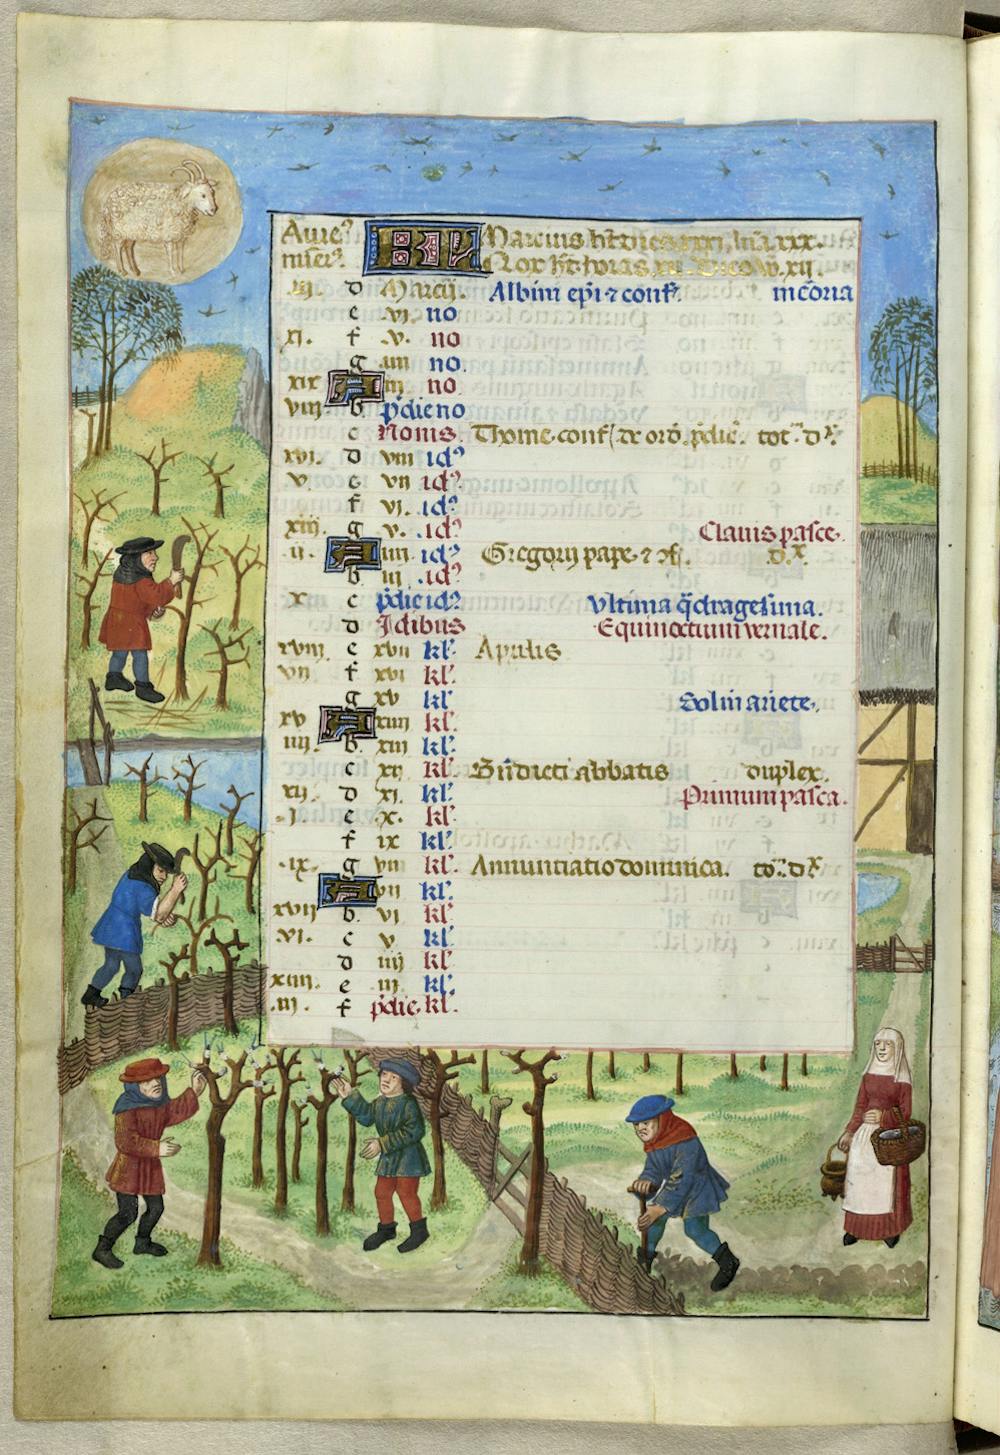 Aureꝰ KL Marcius ht dies xxxi, luā xxx.
mierꝰ. Nox ht horas xii. Dies v̄ xii.
iii. d Marcii. Albini ep̄i ⁊ conf. in coria
e vi no
xi. f v. no
g iiii no.
xix A iii no
viii b p̄die no
c Nonis. Thome conf. de ord. p̄dic. tot. d x.
xvi. d viii idꝰ
v. e vii idꝰ
f vi. idꝰ
xiii. g v. idꝰ Clauis pasce.
ii. A iiii idꝰ Gregorij pape ⁊ d. x.
b iii .idꝰ
x. c p̄die idꝰ Vltima q̄dragesima.
d Idibus Equinoctium vernale.
xviii e xvii kl'. Aprilis
vii f xvi kl'.
g xv kl' Sol in ariete.
xv A xiiii kl'.
iiii b. xiii kl'.
c xii kl'. Bn̄dicti abbatis duplex.
xii. d xi. kl'. Primum pasca.
i. e x. kl'.
f ix kl'
ix. g viii kl'. Annunciatio dominica. to. d x
A vii kl'.
xvii b. vi kl'.
vi. c v kl'.
d iiii kl'
xiiii e iii kl'.
iii. f p̄die kl'.